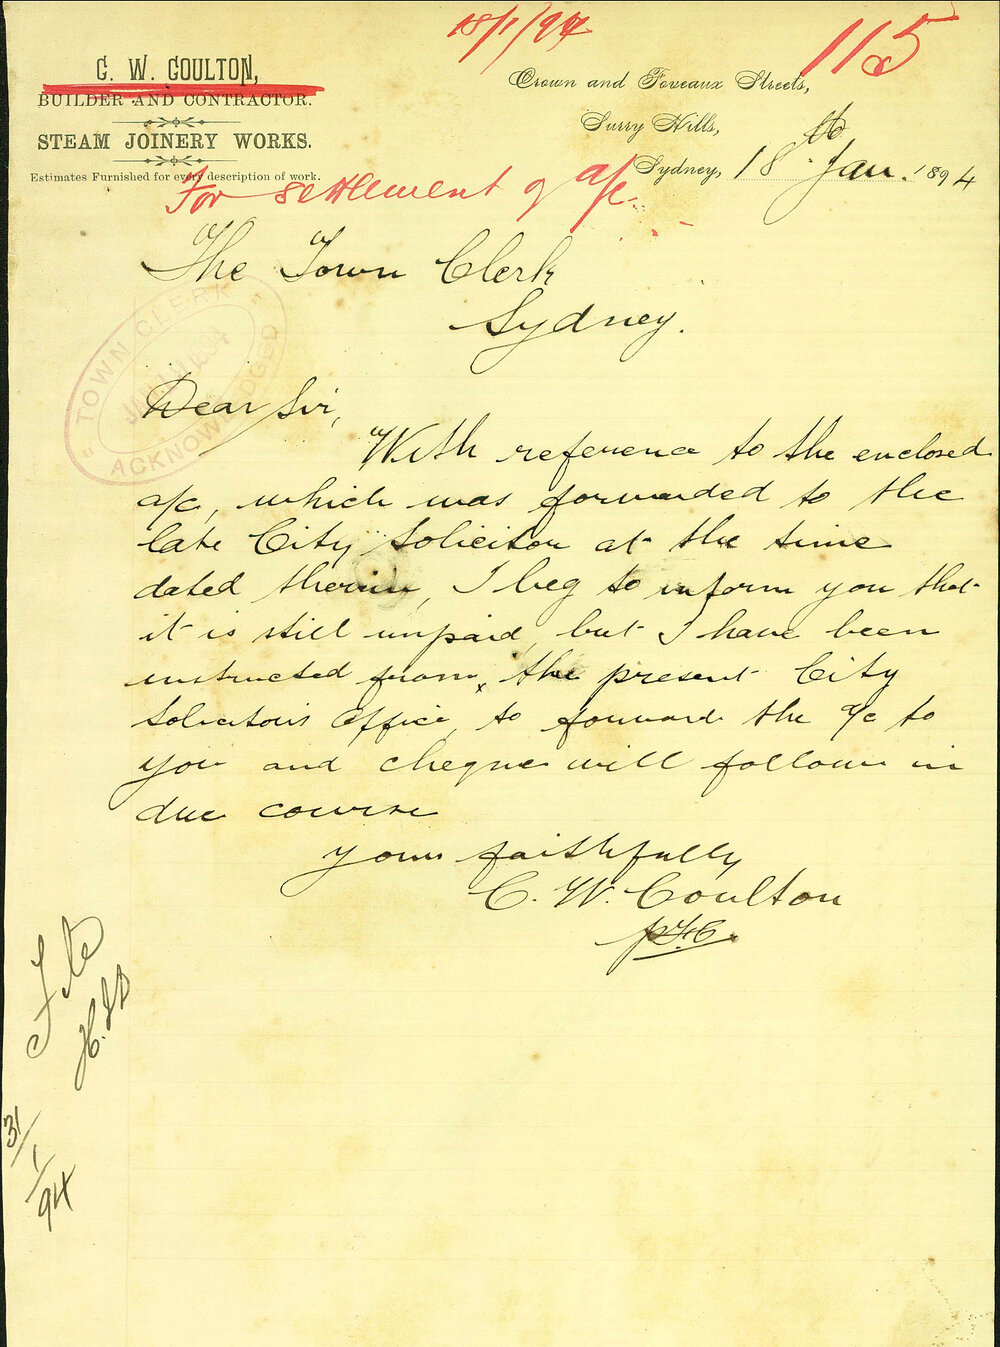 18/1/94
115
C. W. COULTON,
BUILDER AND CONTRACTOR.
STEAM JOINERY WORKS.
Estimates Furnished for every description of work.
Crown and Foveaux Streets,
Surry Hills,
Sydney, 18th Jan. 1894
For settlement of a/c.
The Town Clerk
Sydney.
"TOWN CLERK"
ACKNOWLEDGED
Dear Sir,
With reference to the enclosed
a/c, which was forwarded to the
late City Solicitor at the time
dated therein, I beg to inform you that
it is still unpaid, but I have been
instructed from the present City
Solicitor's Office, to forward the a/c to
you and cheque will follow in
due course
yours faithfully
C. W. Coulton
File
31/1/94